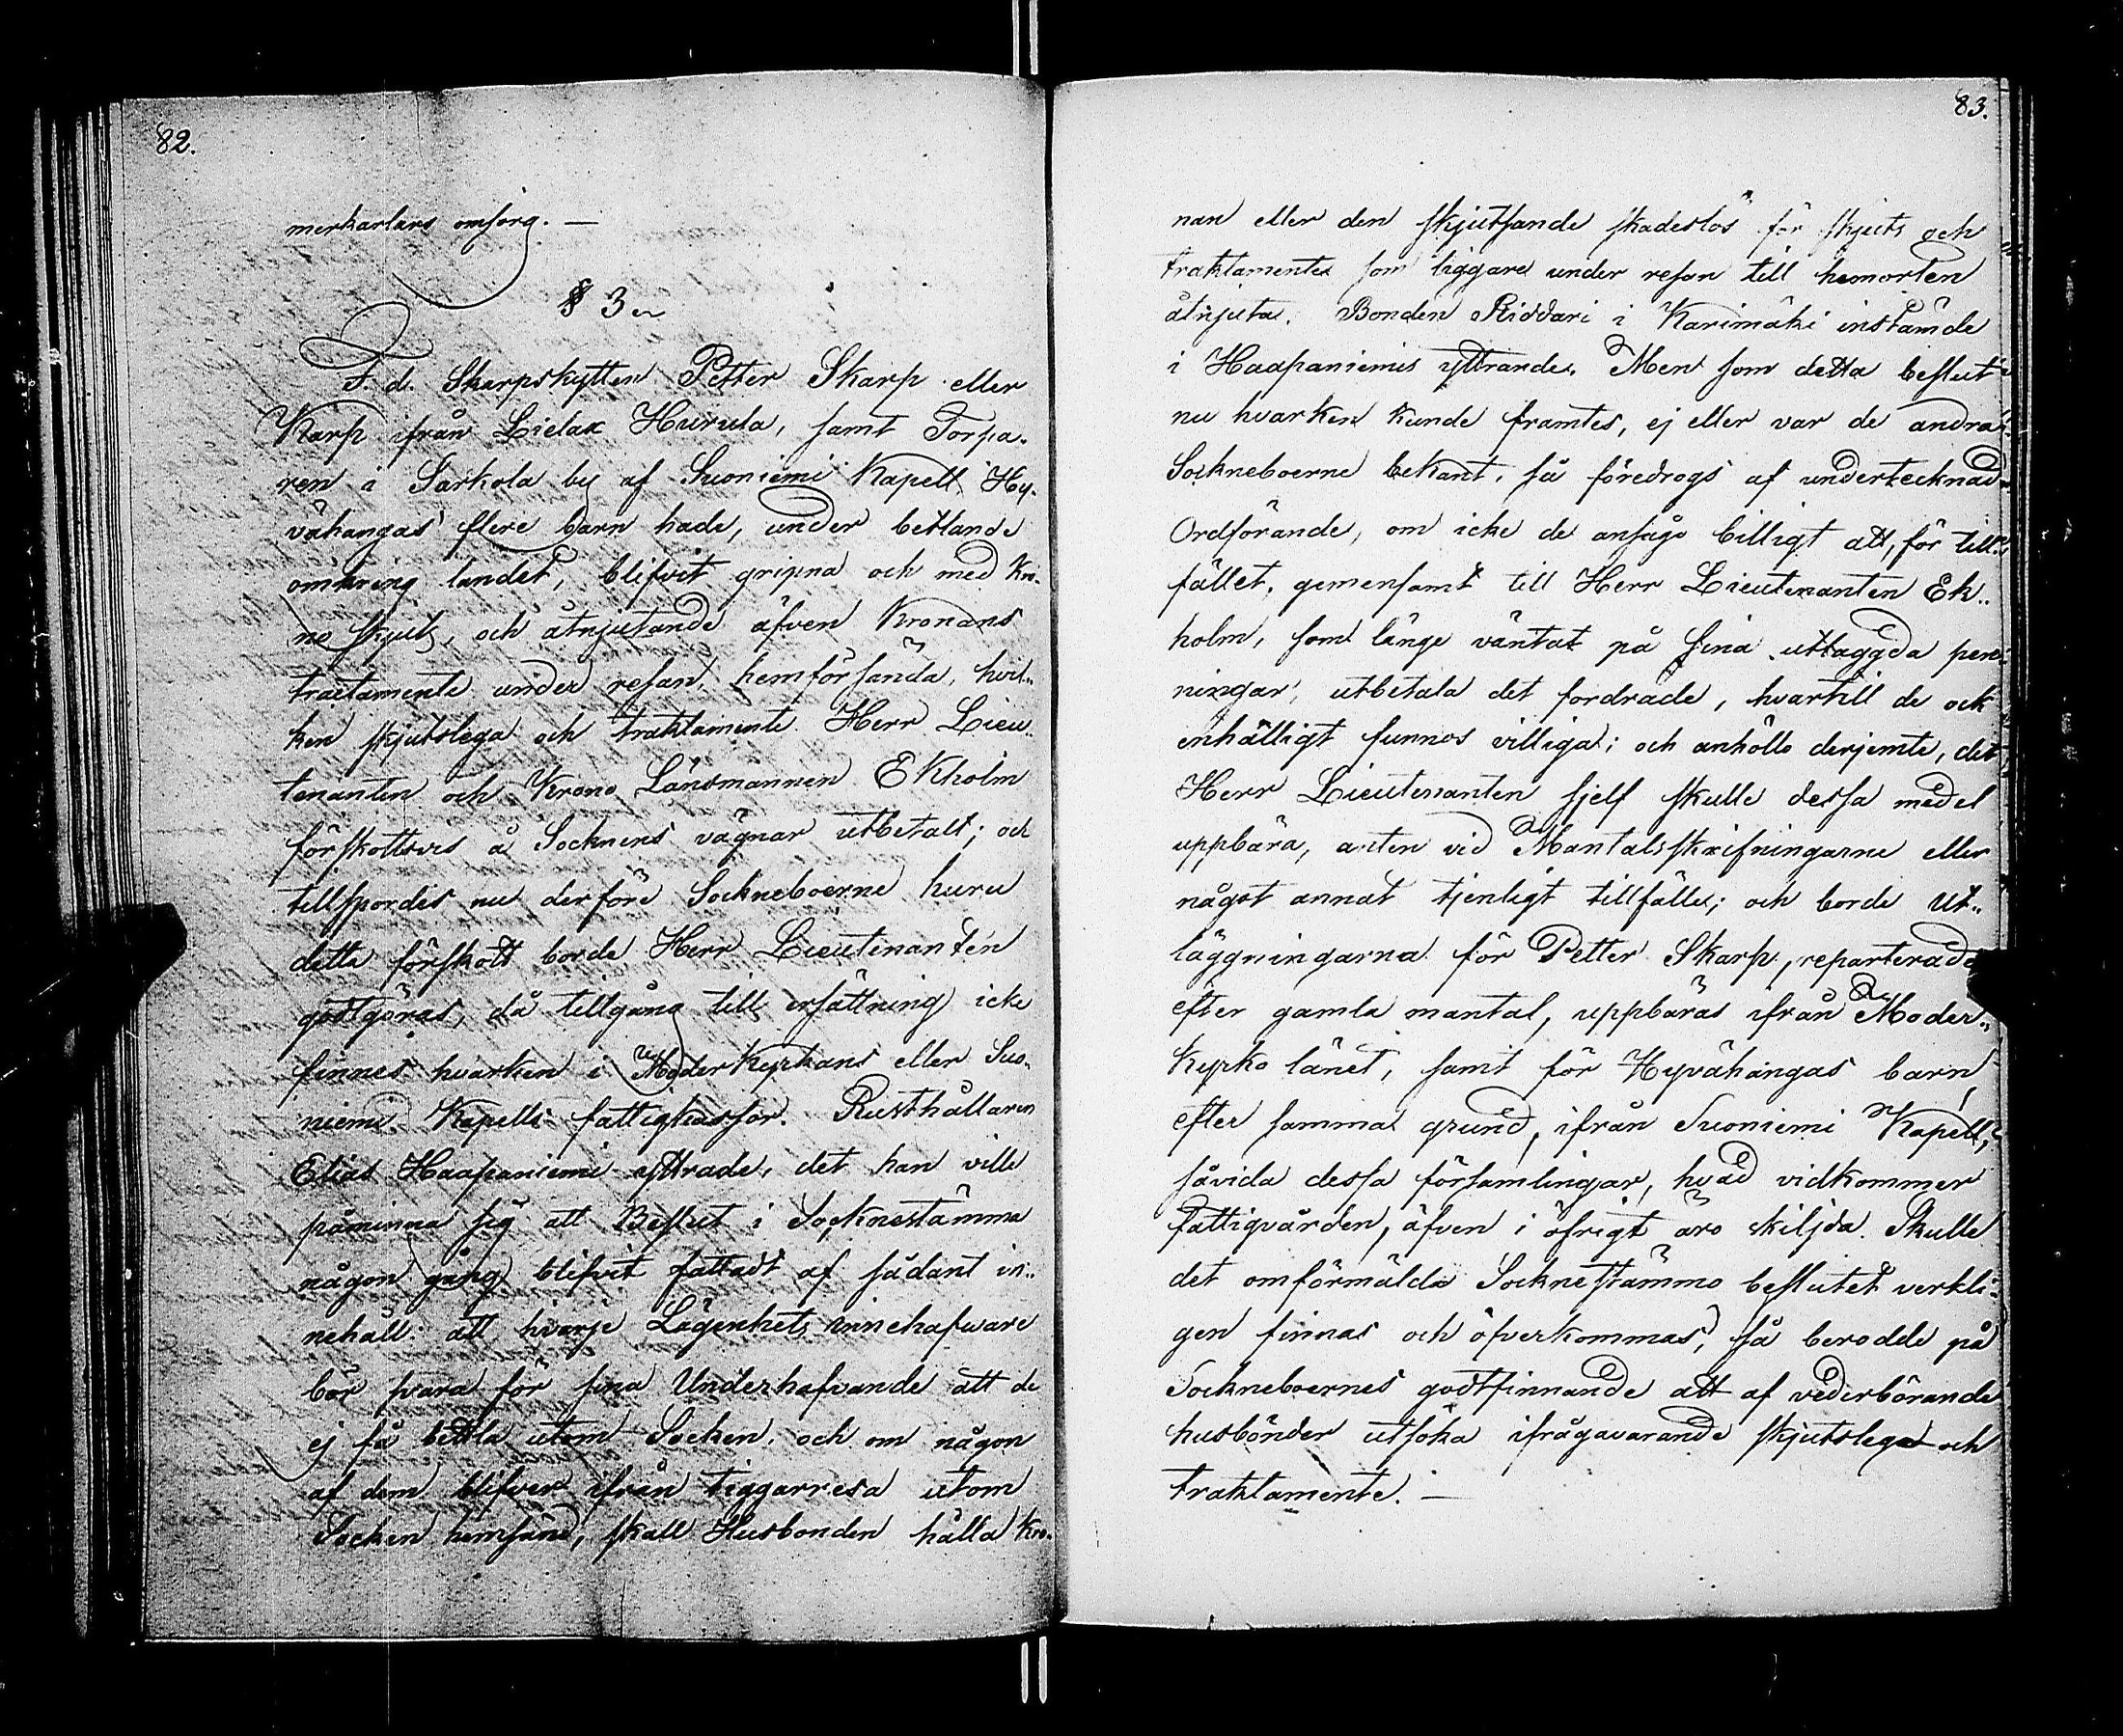 82.
merkarlars omsorg. —
§ 3
F. d. Skarpskytten Petter Skarp eller
Karp ifrån Lielax Hurula, samt Torpa-
ren i Sarkola by af Suoniemi Kapell Hy-
vähangas flere barn hade, under bettlande
omkring landet, blifvit gripna och med Kro-
no skjuts, och åtnjutande äfven Kronans
tractamente under resan, hemförsända, hvil-
ken skjutslega och traktamente Herr Lieu-
tenanten och Krono Länsmannen Ekholm
förskottsvis å Socknens vägnar utbetalt; och
tillspordes nu derföre Sockneboerne huru
detta förskott borde Herr Lieutenanten
godtgöras, då tillgång till ersättning icke
finnes hvarken i Moderkyrkans eller Suo-
niemi Kapells fattigkassor. Rusthållaren
Elias Haapaniemi yttrade, det han ville
påminna sig att Beslut i Socknestämma
någon gång blifvit fattadt af sådant in-
nehåll: att hvarje Lägenhets innehafware
bör svara för sina Underhafvande att de
ej få bettla utom Socken, och om någon
af dem blifver ifrån tiggarresa utom
Socken hemsänd, skall Husbonden hålla Kro-
83.
nan eller den skjutsande skadeslös för skjuts och
traktamente som tiggare under resan till hemorten
åtnjuta. Bonden Riddari i Karimäki instämde
i Haapaniemis yttrande. Men som detta beslut
nu hvarken kunde framtes, ej eller var de andra
Sockneboerne bekant, så föredrogs af undertecknad
Ordförande, om icke de ansågo billigt att, för till-
fället, gemensamt till Herr Lieutenanten Ek-
holm, som länge väntat på sina utlaggda pen-
ningar, utbetala det fordrade, hvartill de ock
enhälligt funnos villiga; och anhöllo derjemte, det
Herr Lieutenanten sjelf skulle dessa medel
uppbära, anten vid Mantalsskrifningarne eller
något annat tjenligt tillfälle; och borde Ut-
läggningarna för Petter Skarp, reparterade
efter gamla mantal, uppbäras ifrån Moder-
kyrko länet, samt för Hyvähangas barn
efter samma grund, ifrån Suoniemi Kapell,
såvida dessa församlingar, hvad vidkommer
fattigvården, äfven i öfrigt äro skiljda. Skulle
det omförmälda Socknestämmo beslutet verkli-
gen finnas och öfverkommas, så berodde på
Sockneboernes godtfinnande att af vederbörande
husbönder utsöka ifrågavarande skjutslega och
traktamente. —